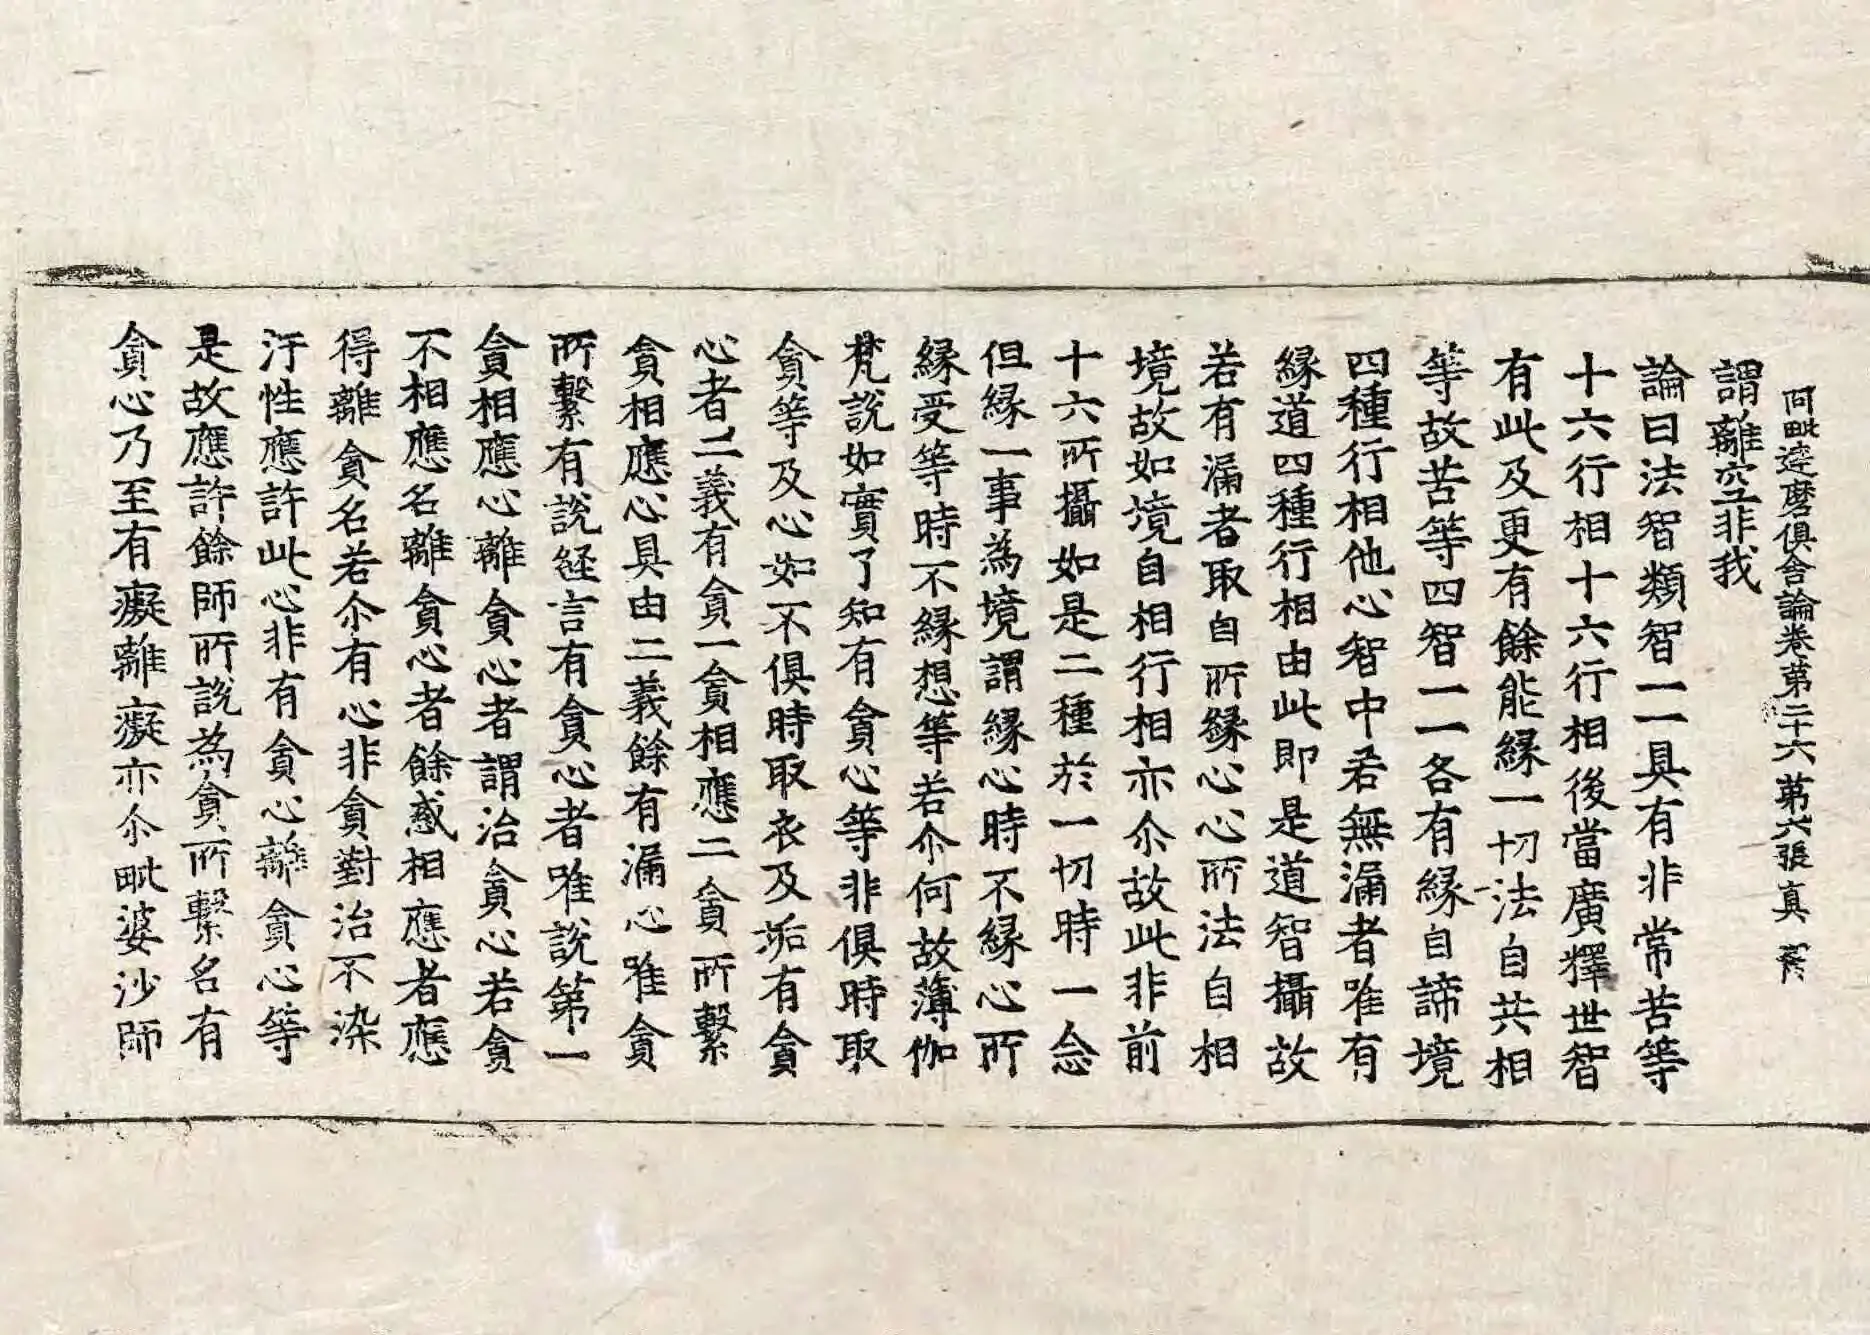 阿毗達磨俱舍論卷第二十六 第六張 真
謂離空非我
論曰法智類智一一具有非常苦等
十六行相十六行相後當廣釋世智
有此及更有餘能緣一切法自共相
等故苦等四智一一各有緣自諦境
四種行相他心智中若無漏者唯有
緣道四種行相由此即是道智攝故
若有漏者取自所緣心心所法自相
境故如境自相行相亦尒故此非前
十六所攝如是二種於一切時一念
但緣一事為境謂緣心時不緣心所
緣受等時不緣想等若尒何故薄伽
梵說如實了知有貪心等非俱時取
貪等及心如不俱時取衣及垢有貪
心者二義有貪一貪相應二貪所繫
貪相應心具由二義餘有漏心唯貪
所繫有說經言有貪心者唯說第一
貪相應心離貪心者謂治貪心若貪
不相應名離貪心者餘惑相應者應
得離貪名若尒有心非貪對治不染
汙性應許此心非有貪心離貪心等
是故應許餘師所說為貪所繫名有
貪心乃至有癡離癡亦尒毗婆沙師